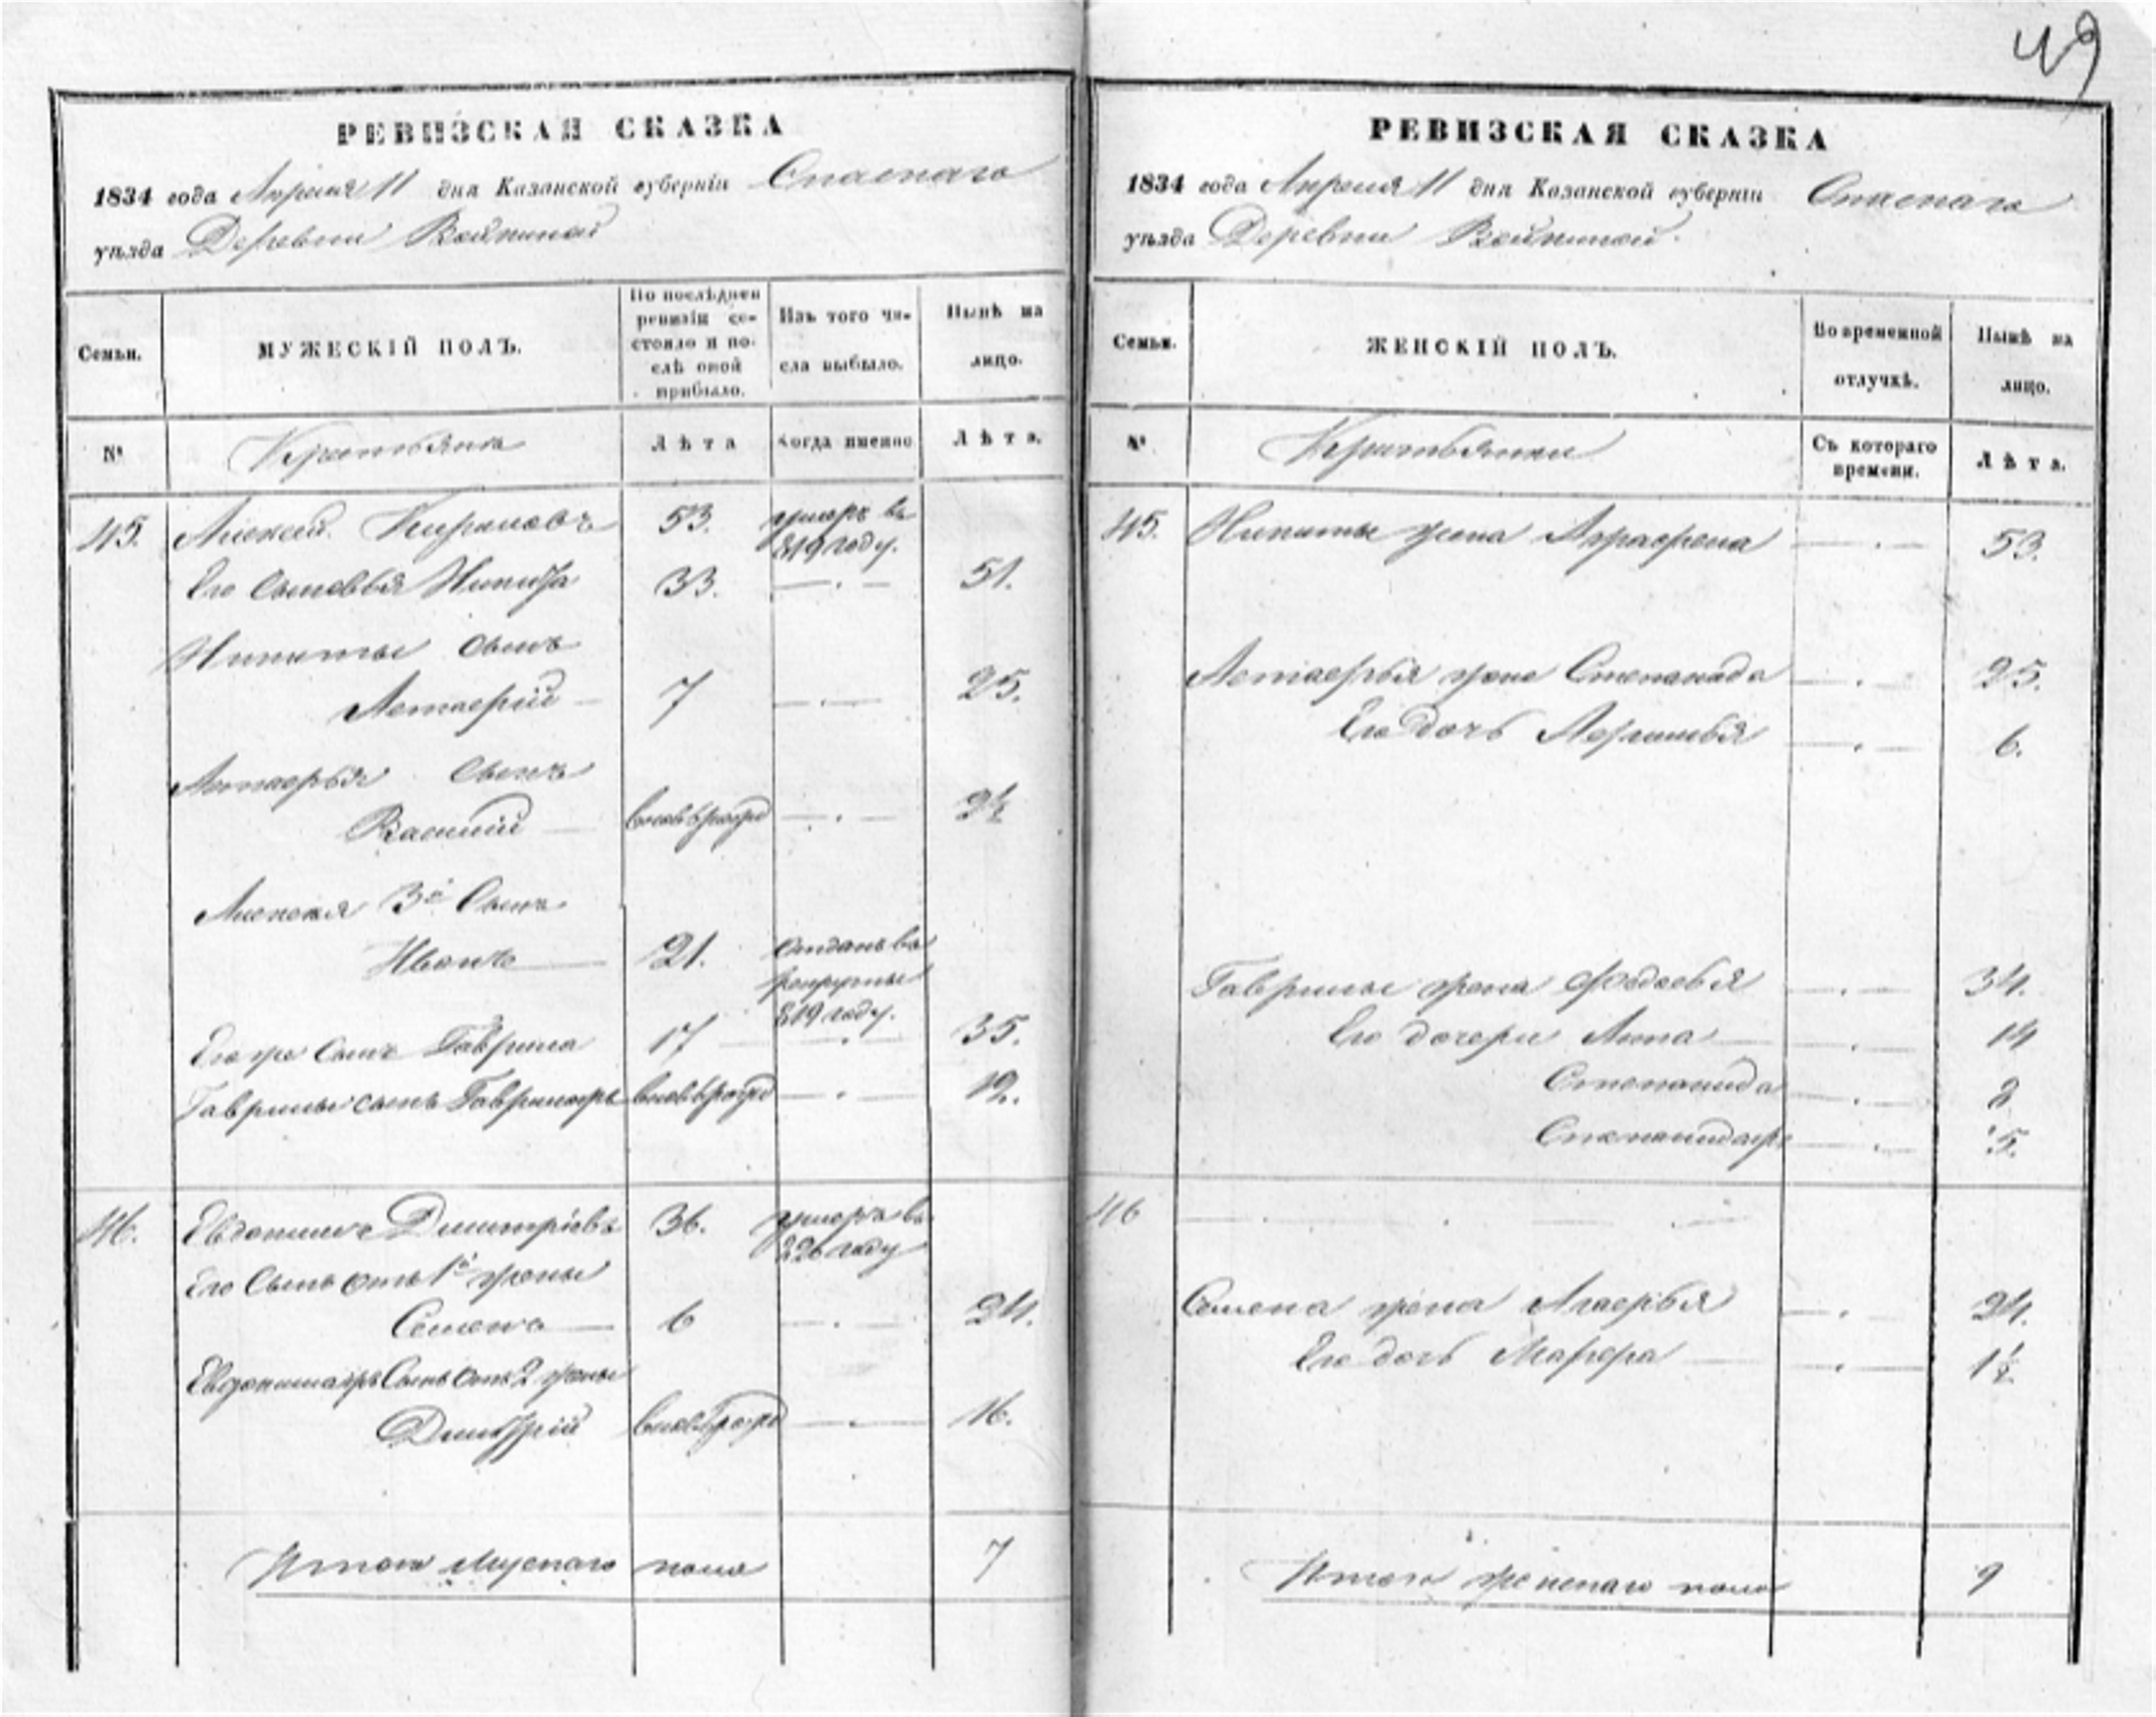 49
РЕВИЗСКАЯ СКАЗКА
1834 года Апреля 11 дня Казанской губерніи Спаскаго
уѣзда Деревни
Семьи.
МУЖЕСКІЙ ПОЛЪ.
По послѣдней ревизіи со-
стояло и по-
слѣ оной
прибыло.
Изъ того чи-
сла выбыло.
Нынѣ на
лицо.
№
Крестьяне
Лѣта
Когда именно
Лѣта.
45. Алексей Кириловъ 53. умеръ въ
819 году.
Его Сыновья Никита 33. 51.
Никиты Сынъ
7 25.
Сынъ
Василий вновьрожд 2½
Алексея 3й Сынъ
Иванъ 21. отданъ въ
рекруты
819 году.
Его же Сынъ Гаврила 17 35.
Гаврилы сынъ Гаврилажъ вновьрожд 12.
46. Евдокимъ Дмитріевъ 36. умеръ въ
826 году
Его Сынъ отъ 1й жены
Семенъ 6 24.
Евдокимажъ Сынъ отъ 2 жены
Дмитрій вновьрожд 16.
Итого Мужскаго пола 7
РЕВИЗСКАЯ СКАЗКА
1834 года Апреля 11 дня Казанской губерніи Спаскаго
уѣзда Деревни
Семьи.
ЖЕНСКІЙ ПОЛЪ.
Во временной
отлучкѣ.
Нынѣ на
лицо.
№
Крестьянки
Съ котораго
времени.
Лѣта.
45. Никиты жена Аграфена 53.
жена Степанида 25.
Его дочь 6.
Гаврилы жена Федосья 34.
Его дочери Анна 14
Степанида 8
Степанидажъ 5.
46
Семена жена Агафья 24.
Его дочь Марфа 1½
Итого женскаго пола 9